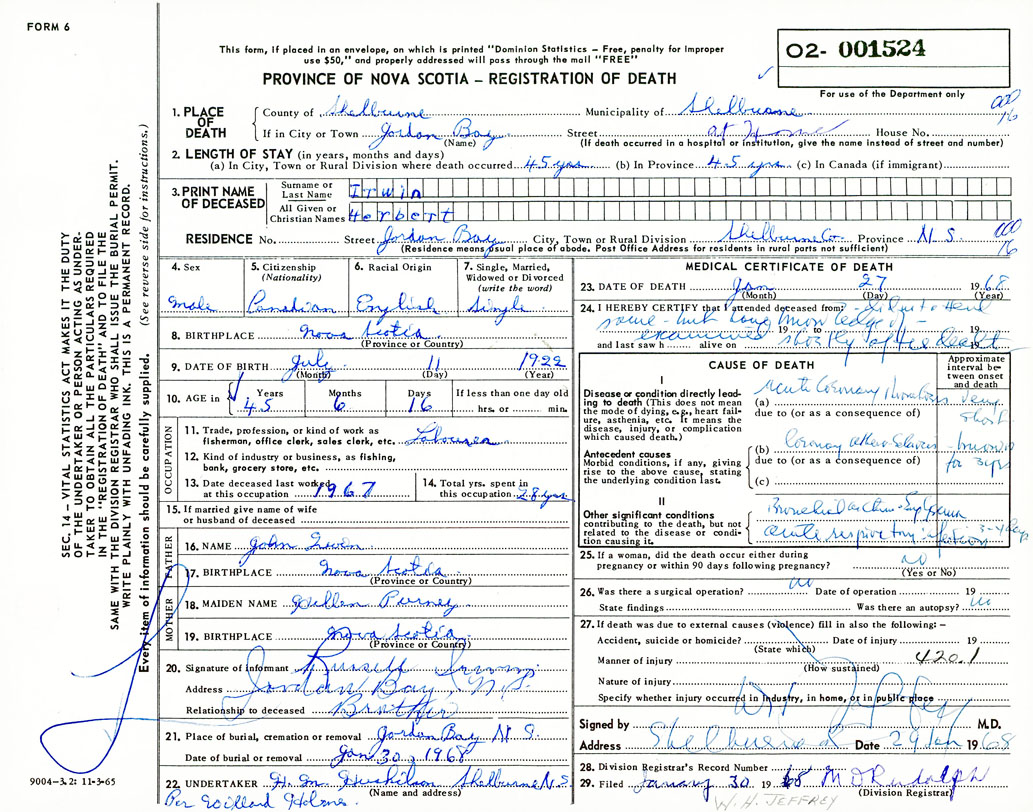 FORM 6
This form, if placed in an envelope, on which is printed "Dominion Statistics – Free, penalty for improper
use $50," and properly addressed will pass through the mail "FREE"
PROVINCE OF NOVA SCOTIA – REGISTRATION OF DEATH
02- 001524
For use of the Department only
1. PLACE OF DEATH County of Shelburne Municipality of Shelburne
If in City or Town Jordan Bay Street at Home House No.
(Name) (If death occurred in a hospital or institution, give the name instead of street and number)
2. LENGTH OF STAY (in years, months and days)
(a) In City, Town or Rural Division where death occurred 45 yrs (b) In Province 45 yrs (c) In Canada (if immigrant)
3. PRINT NAME OF DECEASED Surname or Last Name Irwin
All Given or Christian Names Herbert
RESIDENCE No. Street Jordan Bay City, Town or Rural Division Shelburne Co. Province N.S.
(Residence means usual place of abode. Post Office Address for residents in rural parts not sufficient)
4. Sex 5. Citizenship (Nationality) 6. Racial Origin 7. Single, Married, Widowed or Divorced (write the word)
Male Canadian English Single
8. BIRTHPLACE Nova Scotia
(Province or Country)
9. DATE OF BIRTH July 11 1922
(Month) (Day) (Year)
10. AGE in Years Months Days If less than one day old
45 6 16 hrs. or min.
OCCUPATION
11. Trade, profession, or kind of work as
fisherman, office clerk, sales clerk, etc. Labourer
12. Kind of industry or business, as fishing,
bank, grocery store, etc.
13. Date deceased last worked at this occupation 1967 14. Total yrs. spent in this occupation 28 yrs
15. If married give name of wife
or husband of deceased
FATHER
16. NAME John Irwin
17. BIRTHPLACE Nova Scotia
(Province or Country)
MOTHER
18. MAIDEN NAME Purney
19. BIRTHPLACE Nova Scotia
(Province or Country)
20. Signature of informant Russell Irwin
Address Jordan Bay, N.S.
Relationship to deceased Brother
21. Place of burial, cremation or removal Jordan Bay N.S.
Date of burial or removal Jan 30, 1968
22. UNDERTAKER H. M. Shelburne N.S.
(Name and address)
Per Willard Holmes.
MEDICAL CERTIFICATE OF DEATH
23. DATE OF DEATH Jan 27 1968
(Month) (Day) (Year)
24. I HEREBY CERTIFY that I attended deceased from
19
and last saw h alive on shortly after death 19
CAUSE OF DEATH
Approximate interval between onset and death
I
Disease or condition directly leading to death (This does not mean the mode of dying, e.g., heart failure, asthenia, etc. It means the disease, injury, or complication which caused death.)
(a) Acute Coronary Thrombosis very short
due to (or as a consequence of)
Antecedent causes
Morbid conditions, if any, giving rise to the above cause, stating the underlying condition last.
(b) Coronary for 3 yrs
due to (or as a consequence of)
(c)
II
Other significant conditions contributing to the death, but not related to the disease or condition causing it.
Bronchial asthma - Emphysema
acute respiratory infection 3-4 days
25. If a woman, did the death occur either during
pregnancy or within 90 days following pregnancy? no
(Yes or No)
26. Was there a surgical operation? no Date of operation 19
State findings Was there an autopsy? no
27. If death was due to external causes (violence) fill in also the following: –
Accident, suicide or homicide? Date of injury 19
(State which)
Manner of injury 420.1
(How sustained)
Nature of injury
Specify whether injury occurred in industry, in home, or in public place
Signed by M.D.
Address Shelburne Date 29 Jan 1968
28. Division Registrar's Record Number
29. Filed January 30 1968 M D Rudolph
(Division Registrar)
W.H. JEFFREY
SEC. 14 – VITAL STATISTICS ACT MAKES IT THE DUTY
OF THE UNDERTAKER OR PERSON ACTING AS UNDER-
TAKER TO OBTAIN ALL THE PARTICULARS REQUIRED
IN THE "REGISTRATION OF DEATH" AND TO FILE THE
SAME WITH THE DIVISION REGISTRAR WHO SHALL ISSUE THE BURIAL PERMIT.
WRITE PLAINLY WITH UNFADING INK. THIS IS A PERMANENT RECORD.
Every item of information should be carefully supplied. (See reverse side for instructions.)
9004-3.2: 11-3-65